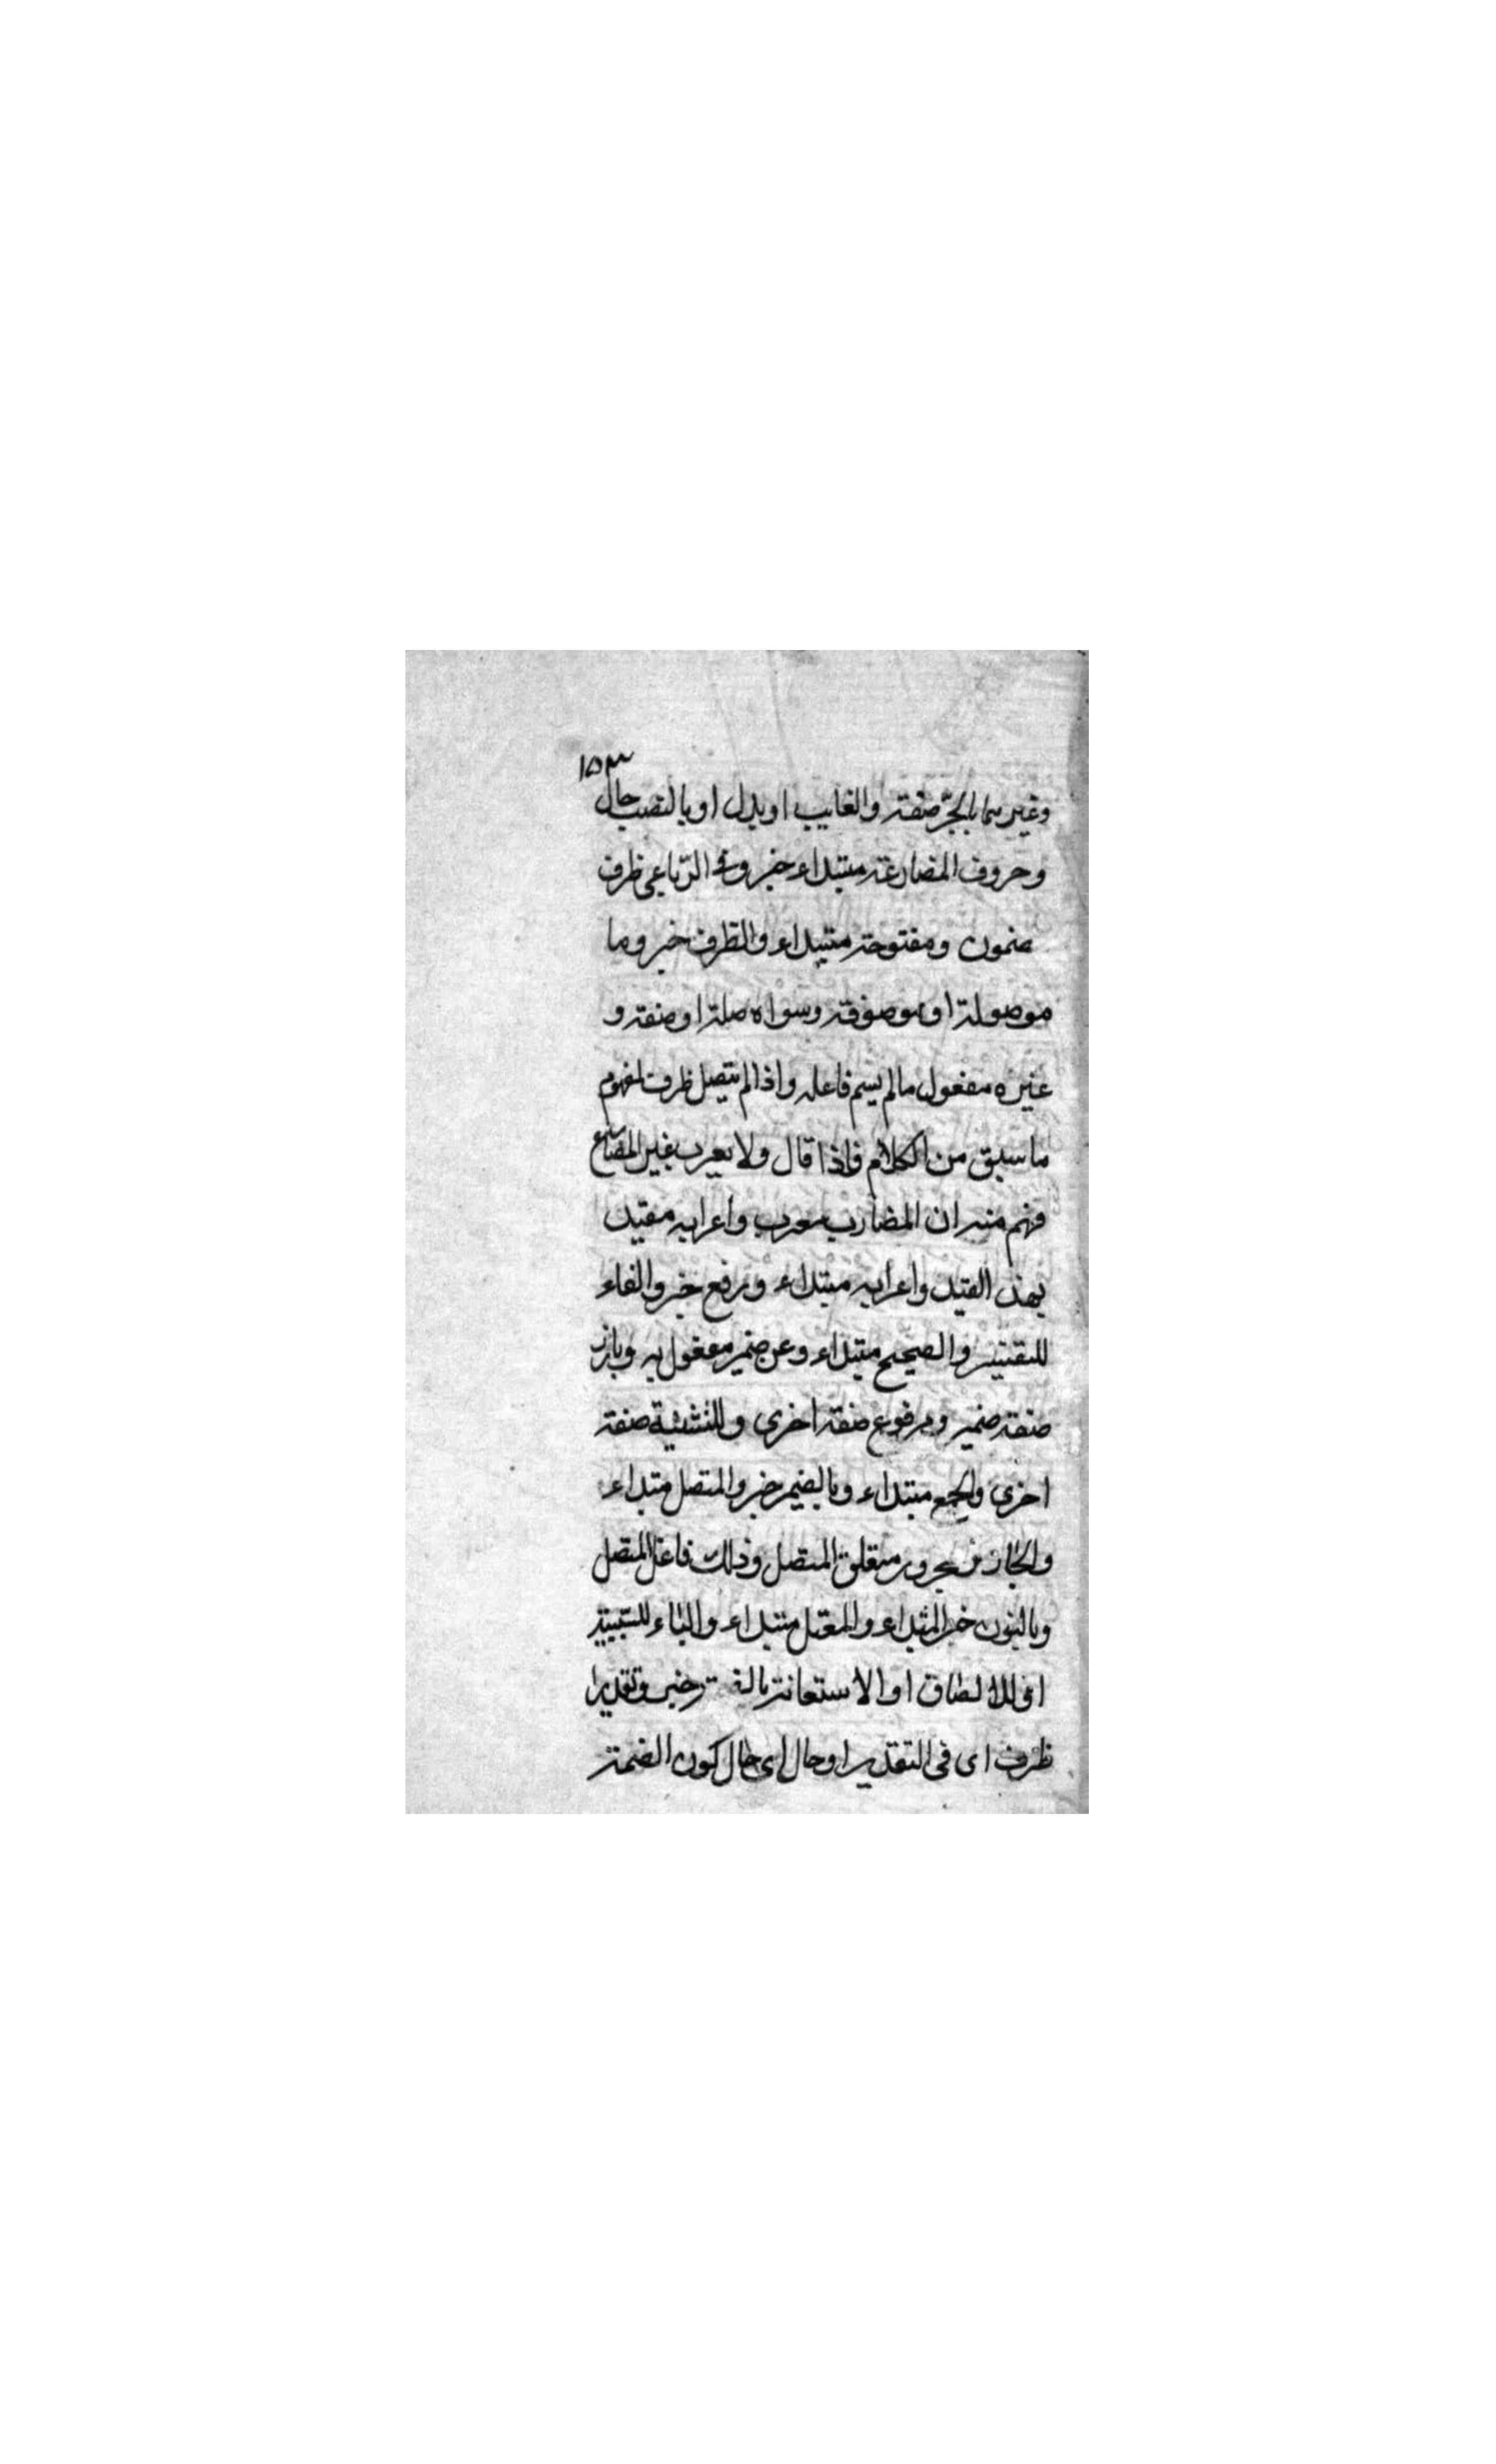 ١٥٣
وغيرهما بالجرّ صفة والغايب او بدل او بالنصب حال
وحروف المضارعة مبتداء خبر وفى الرّباعى ظرف
مضمون ومفتوحة مبتداء والظرف خبر وما
موصولة او موصوفة وسواه صلة او صفة و
غيره مفعول مالم يسم فاعله واذا لم يتصل ظرف لمفهوم
ما سبق من الكلام فاذا قال ولا يعرب غير المضارع
فهم منه ان المضارب معرب واعرابه مقيد
بهذ القيد واعرابه مبتداء ورفع خبر والفاء
للتفسير والصحيح مبتداء وعن ضمير مفعول به وبارز
صفة ضمير ومرفوع صفة اخرى وللتثنية صفة
اخرى والجمع مبتداء وبالضمير خبر والمتصل مبتداء
والجار فى مجرور متعلق المتصل وذلك فاعل المتصل
وبالنون خبر المبتداء والمعتل مبتداء والباء للسببية
او الاستعانة خبر وتقديرا
ظرف اى فى التقدير او حال اى حال كون الضمة